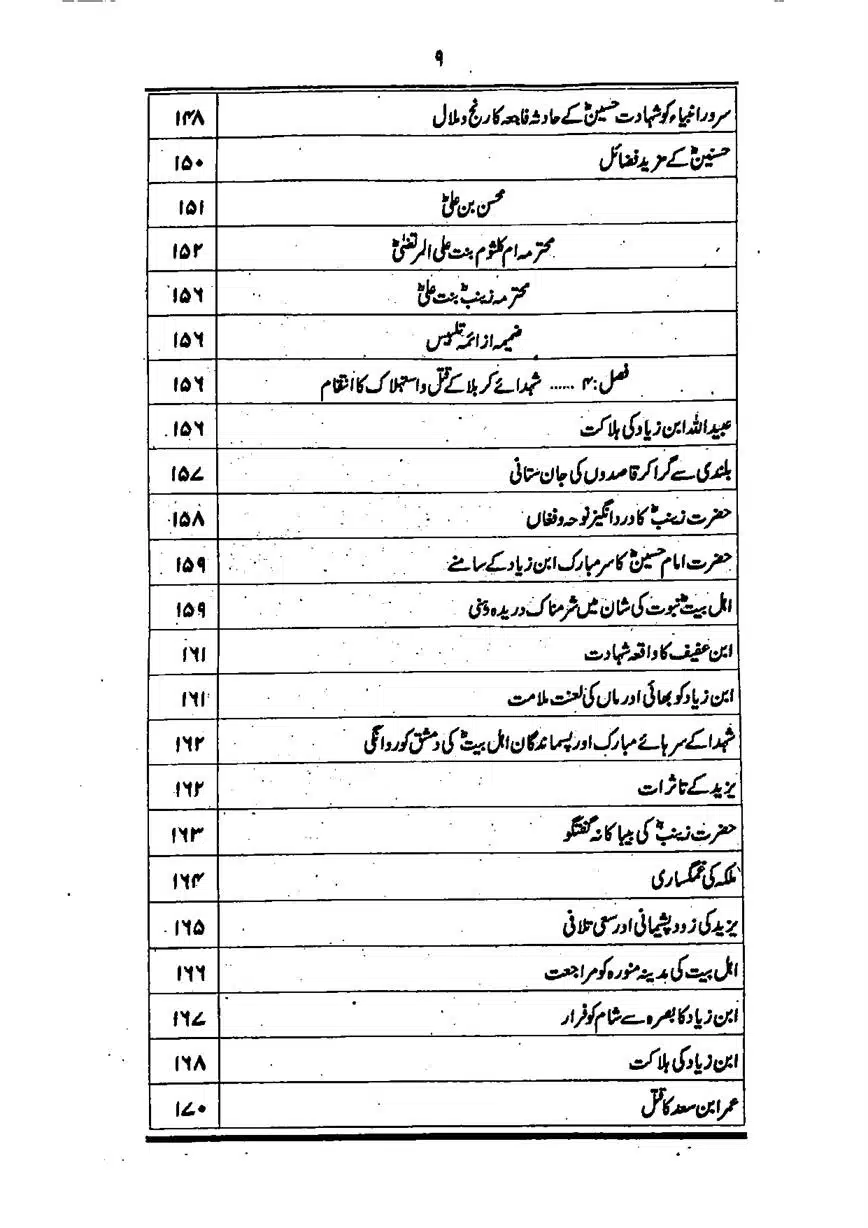 ۹
سرور انبیاء کو شہادت حسینؓ کے حادثہ فاجعہ کا رنج و ملال ۱۴۸
حسنینؓ کے مزید فضائل ۱۵۰
محسن بن علیؓ ۱۵۱
محترمہ ام کلثوم بنت علی المرتضیٰؓ ۱۵۲
محترمہ زینبؓ بنت علیؓ ۱۵۶
ضمیمہ از ائمہ تلبیس ۱۵۶
فصل: ۴ ...... شہدائے کربلا کے قتل و استہلاک کا انتقام ۱۵۶
عبید اللہ ابن زیاد کی ہلاکت ۱۵۶
بلندی سے گرا کر قاصدوں کی جان ستانی ۱۵۷
حضرت زینبؓ کا درد انگیز نوحہ و فغاں ۱۵۸
حضرت امام حسینؓ کا سر مبارک ابن زیاد کے سامنے ۱۵۹
اہل بیتؓ نبوت کی شان میں شرمناک دریدہ دہنی ۱۵۹
ابن عفیف کا واقعہ شہادت ۱۶۱
ابن زیاد کو بھائی اور ماں کی لعنت ملامت ۱۶۱
شہدا کے سر ہائے مبارک اور پسماندگان اہل بیتؓ کی دمشق کو روانگی ۱۶۲
یزید کے تاثرات ۱۶۲
حضرت زینبؓ کی بیباکانہ گفتگو ۱۶۳
ملکہ کی غمگساری ۱۶۴
یزید کی زود پشیمانی اور سعی تلافی ۱۶۵
اہل بیت کی مدینہ منورہ کو مراجعت ۱۶۶
ابن زیاد کا بصرہ سے شام کو فرار ۱۶۷
ابن زیاد کی ہلاکت ۱۶۸
عمر ابن سعد کا قتل ۱۷۰